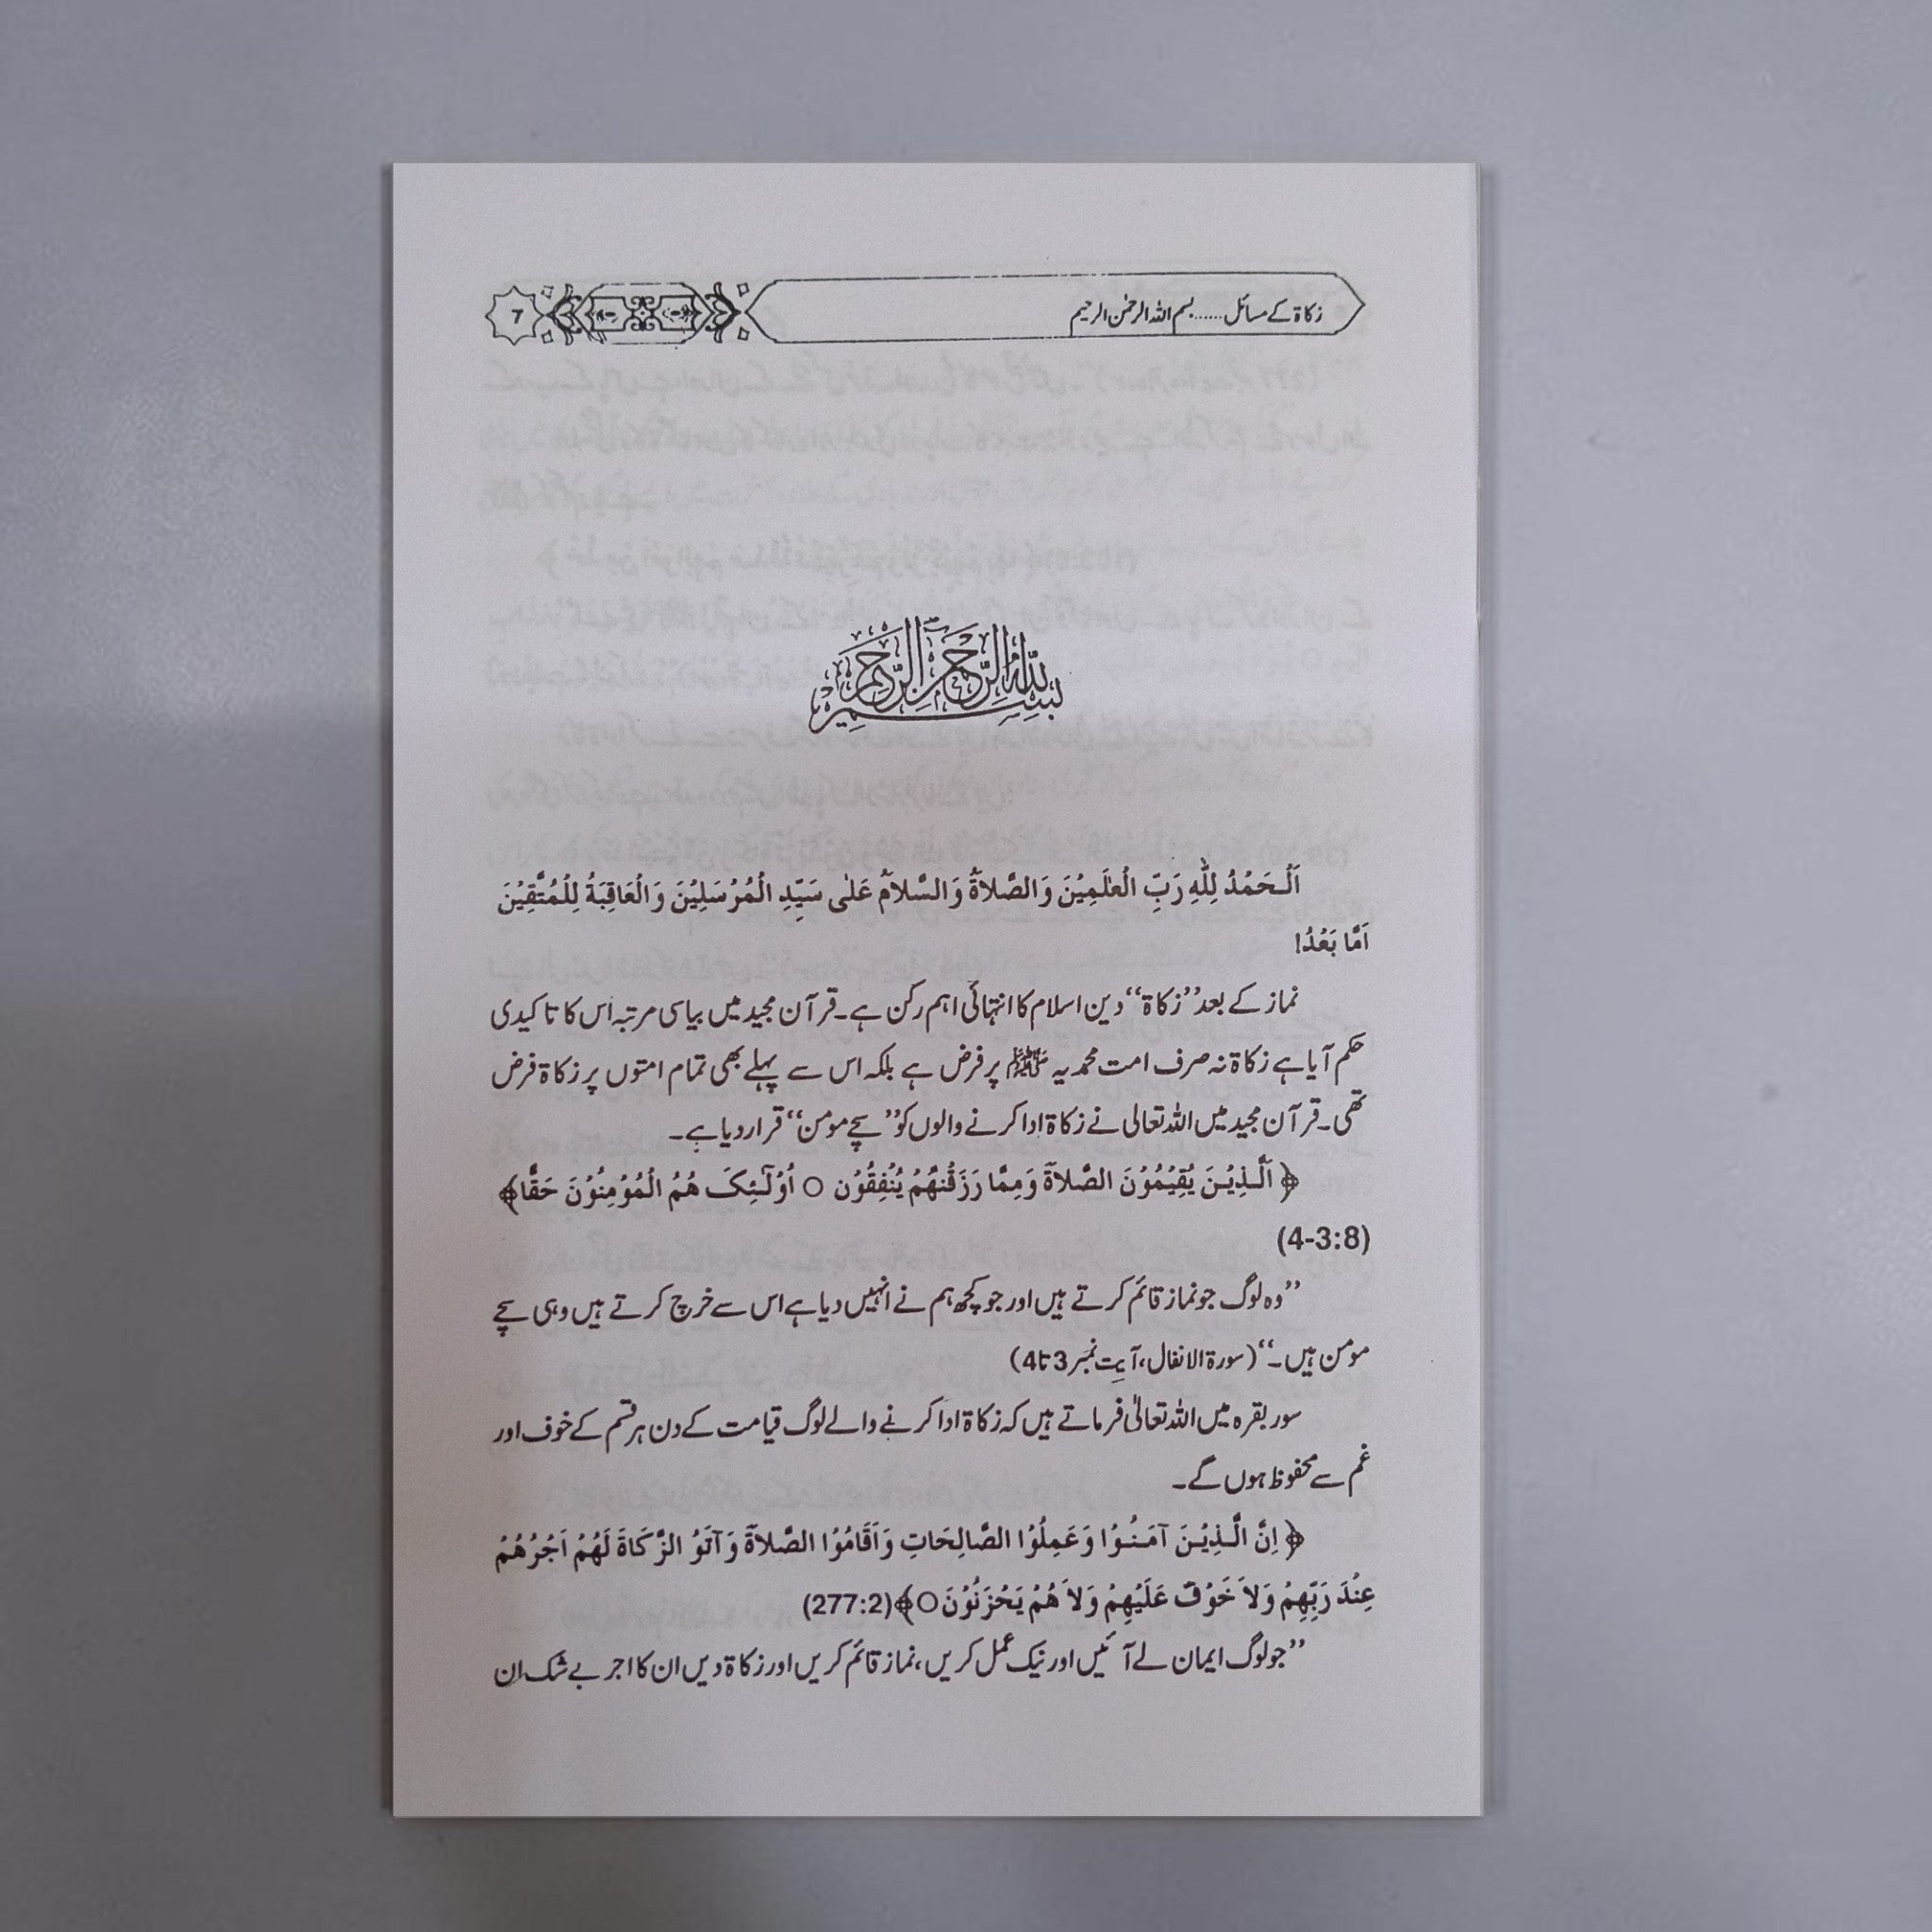 زکاۃ کے مسائل......بسم اللہ الرحمٰن الرحیم
7
بِسْمِ اللهِ الرَّحْمٰنِ الرَّحِيْمِ
اَلْـحَمْدُ لِلّٰهِ رَبِّ الْعٰلَمِيْنَ وَالصَّلاَةُ وَالسَّلاَمُ عَلٰى سَيِّدِ الْمُرْسَلِيْنَ وَالْعَاقِبَةُ لِلْمُتَّقِيْنَ
اَمَّا بَعْدُ!
نماز کے بعد ’’زکاۃ‘‘ دین اسلام کا انتہائی اہم رکن ہے۔قرآن مجید میں بیاسی مرتبہ اس کا تاکیدی
حکم آیا ہے زکاۃ نہ صرف امت محمدیہ ﷺ پر فرض ہے بلکہ اس سے پہلے بھی تمام امتوں پر زکاۃ فرض
تھی۔قرآن مجید میں اللہ تعالی نے زکاۃ ادا کرنے والوں کو ’’سچے مومن‘‘ قرار دیا ہے۔
﴿ اَلَّـذِيْـنَ يُقِيْمُوْنَ الصَّلاَةَ وَمِمَّا رَزَقْنٰهُمْ يُنْفِقُوْن ○ اُوْلَـٰٓئِكَ هُمُ الْمُوْمِنُوْنَ حَقًّا﴾
(4-3:8)
’’وہ لوگ جو نماز قائم کرتے ہیں اور جو کچھ ہم نے انہیں دیا ہے اس سے خرچ کرتے ہیں وہی سچے
مومن ہیں۔‘‘ (سورۃ الانفال، آیت نمبر 3 تا 4)
سور بقرہ میں اللہ تعالیٰ فرماتے ہیں کہ زکاۃ ادا کرنے والے لوگ قیامت کے دن ہر قسم کے خوف اور
غم سے محفوظ ہوں گے۔
﴿ اِنَّ الَّـذِيْـنَ آمَـنُـوْا وَعَمِلُوْا الصَّالِحَاتِ وَاَقَامُوْا الصَّلاَةَ وَآتَوُ الزَّكَاةَ لَهُمْ اَجْرُهُمْ
عِنْدَ رَبِّهِمْ وَلاَ خَوْفٌ عَلَيْهِمْ وَلاَ هُمْ يَحْزَنُوْنَ○﴾(277:2)
’’جو لوگ ایمان لے آئیں اور نیک عمل کریں، نماز قائم کریں اور زکاۃ دیں ان کا اجر بے شک ان